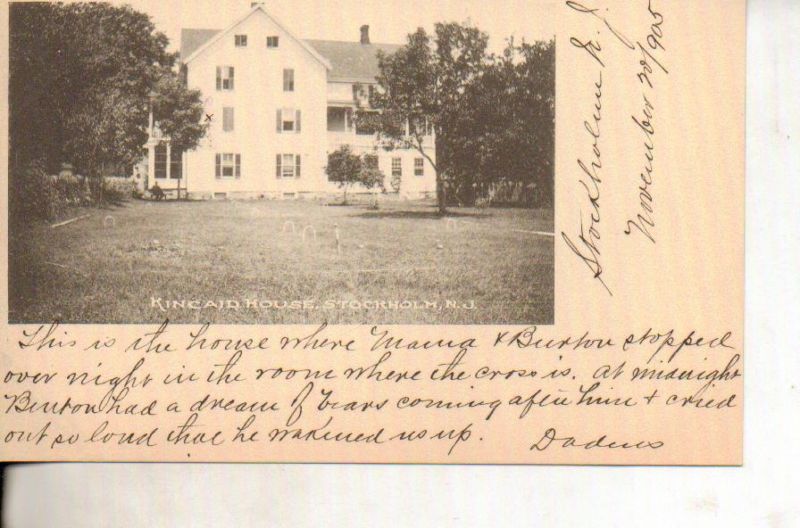 Stockholm N. J.
November 20/905
KINCAID HOUSE, STOCKHOLM, N.J.
This is the house where Mama & Burton stopped
over night in the room where the cross is. At midnight
Burton had a dream of bears coming after him & cried
out so loud that he wakened us up.